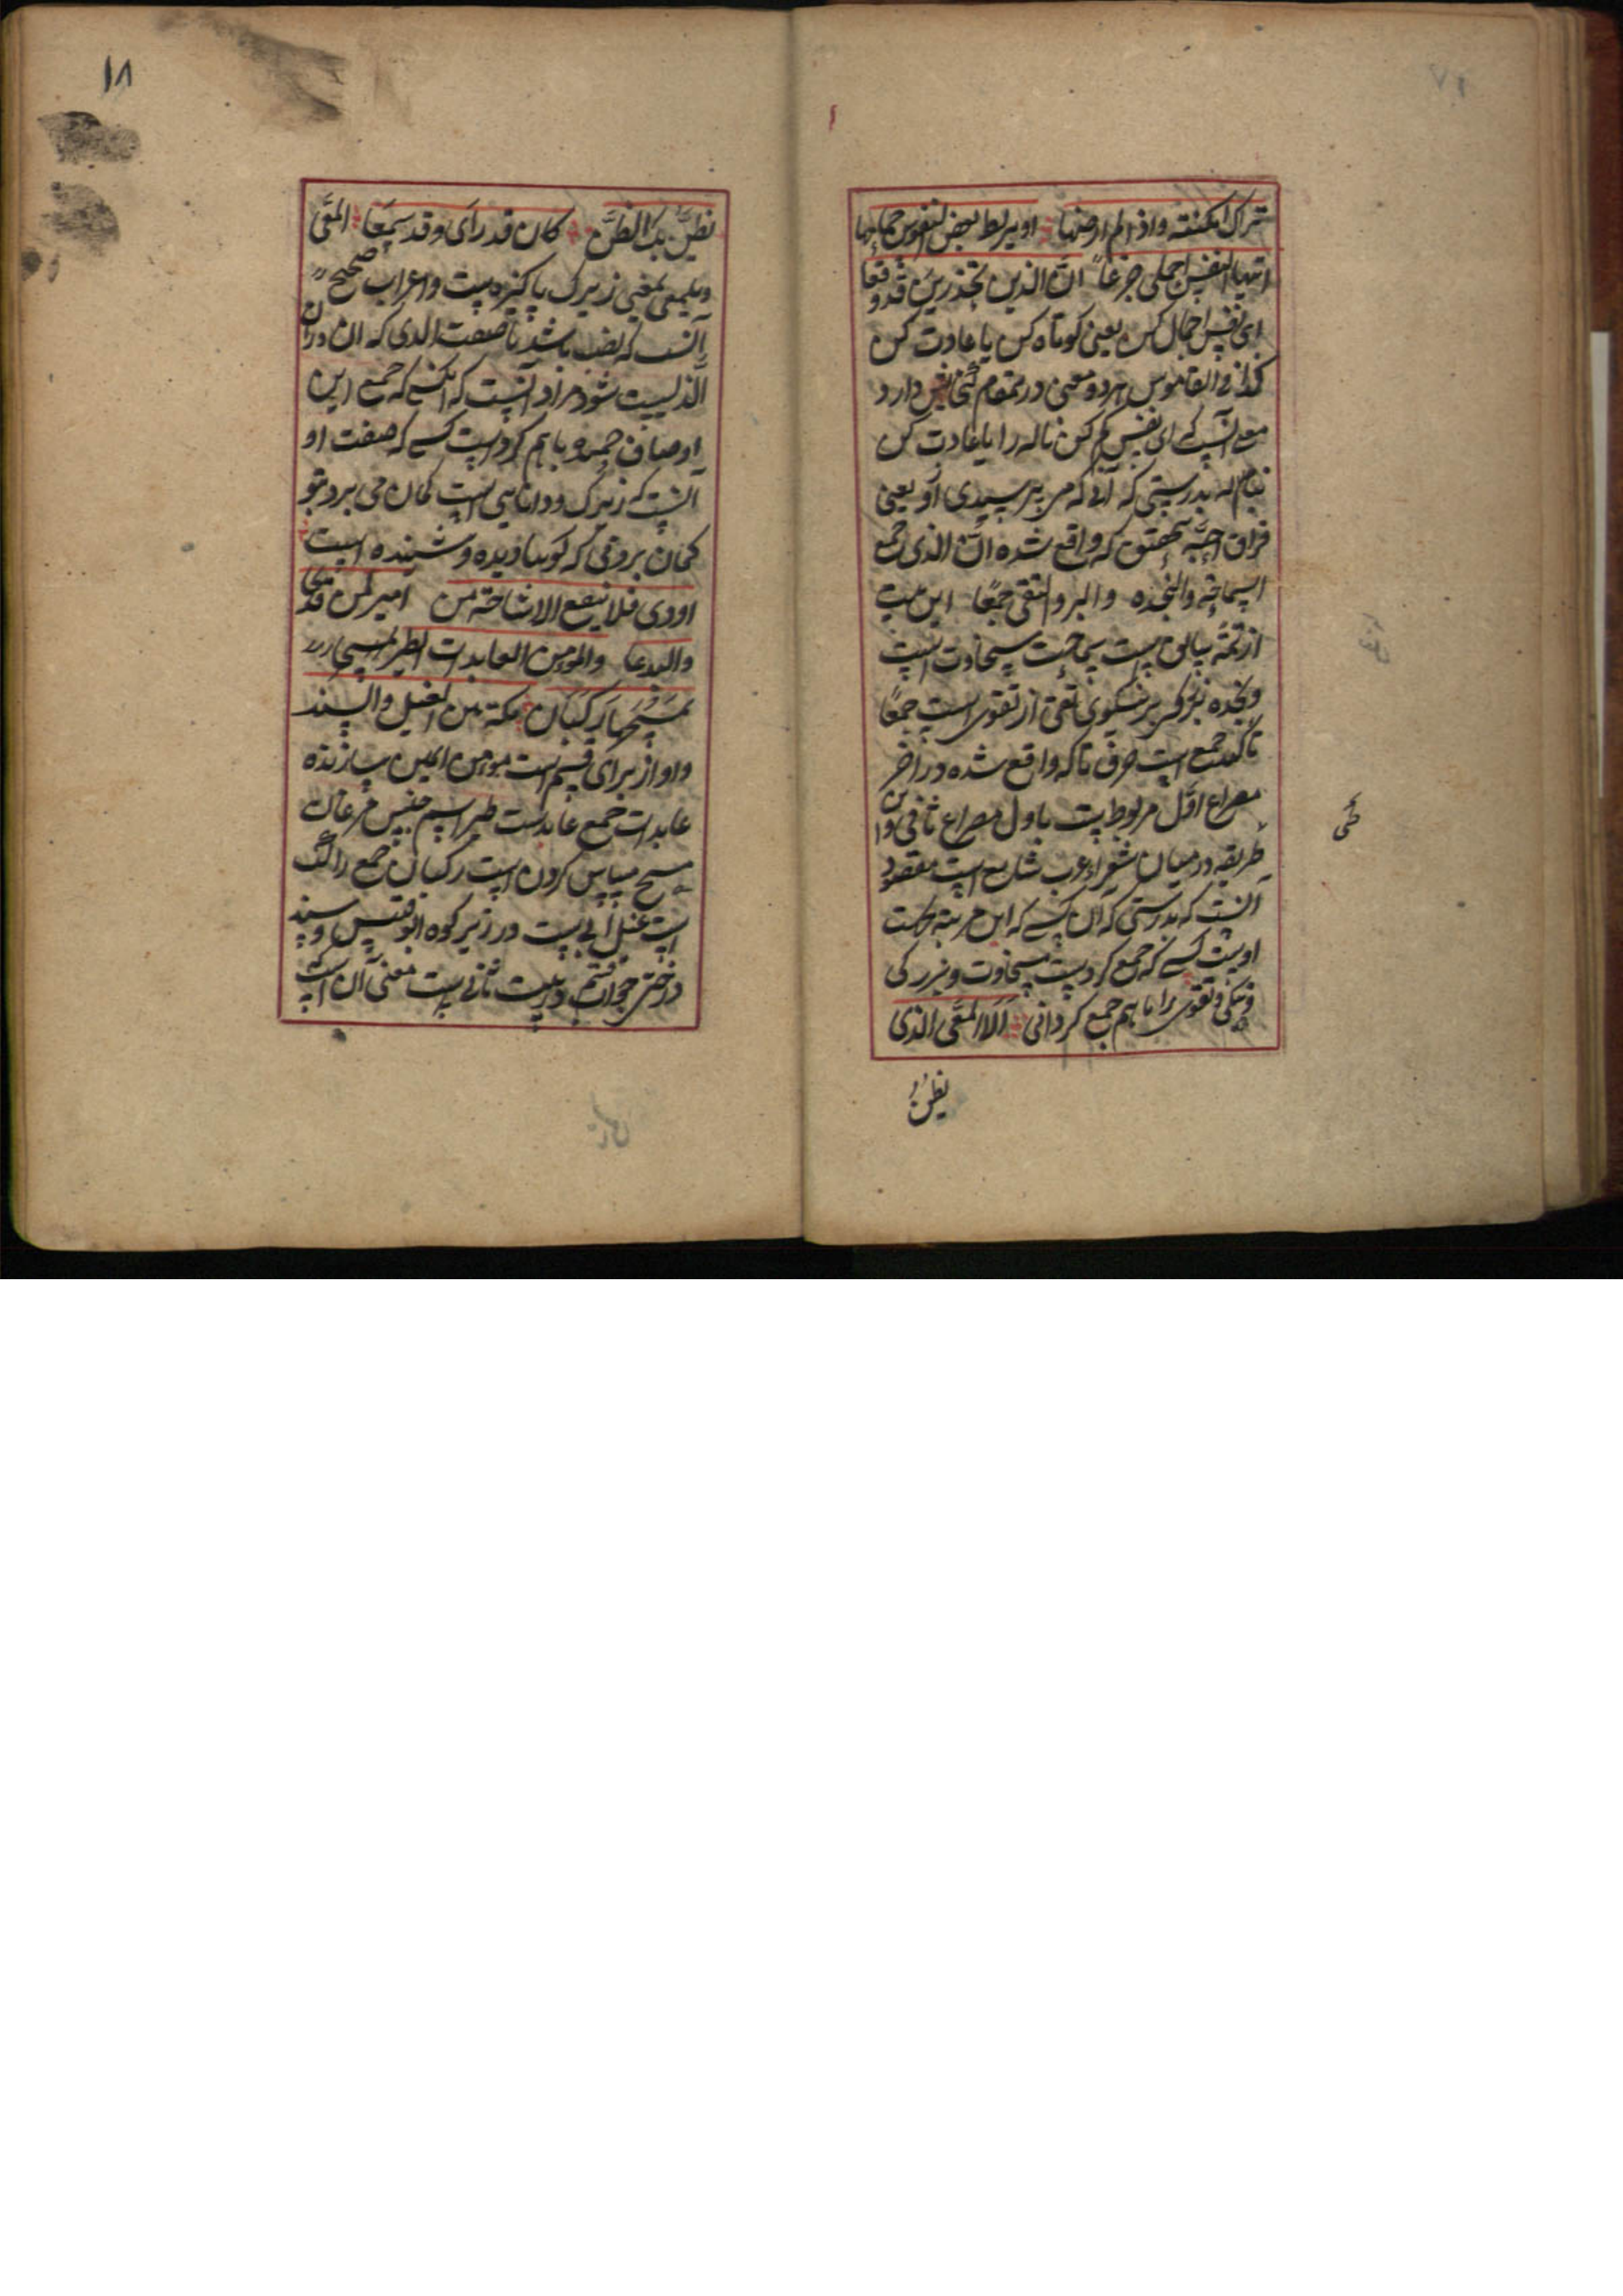 تراک امکنته واذا لم ارضها اویرتبط بعض النفوس حمامها
ایتها النفس اجملی جزعاً انّ الذین تحذرین قد وقعا
ای نفس اجمال کن یعنی کوتاه کن یا عادت کن
کذا فی القاموس هر دو معنی درینمقام گنجایش دارد
معنی آنست که ای نفس کم کن ناله را یا عادت کن
بناله بدرستی که آنکه می ترسیدی از و یعنی
فراق احبّه بتحقیق که واقع شده انّ الذی جمع
السماحة والنجده والبر والتقی جمعًا این بیت
از تتمّه سابق ست سماحت سخاوت است
ونجده بزرگی بر نیکوی تقی از تقوی است جمعًا
تاکید جمع است حرف تا که واقع شده در آخر
مصراع اوّل مربوط ست باول مصراع ثانی و این
طریقه در میان شعراء عرب شایع است مقصود
آنست که بدرستی که آن کسی که این مرثیه در حق
اوست کسی که جمع کردست سخاوت و بزرگی
و نیکی و تقوی را با هم جمع کردنی الالمعّی الذی
یظنّ
طی
۱۸
یظنّ بک الظنّ کان قد رای وقد سمعا المعّی
ویلمعی بمعنی زیرک پاکیزه ست و اعراب صحیح
آنست که نصب باشد تا صفت الذی که ان در ان
الّذیست شود مراد آنست که آنکسی که جمع این
اوصاف حمیده باهم کردست کسی که صفت او
آنست که زیرک و دانایی است گمان می برد بتو
گمان بردنی که گویا دیده و شنیده است
اودی فلا ینفع الاشاحة من امر لمن قد
والبدعا والمؤمن العابدات الطیر تمسحها
تمسّحها رکبان مکّة بین الغیل والسند
واو از برای قسم است مومن ایمن سازنده
عابدات جمع عابدست طیر اسم جنس مرغان
مسح مساس کردن است رکبان جمع راکب
است غیل آبی ست در زیر کوه ابو قبیس و سند
درختی جواب قسم در بیت ثانی ست معنی آن است